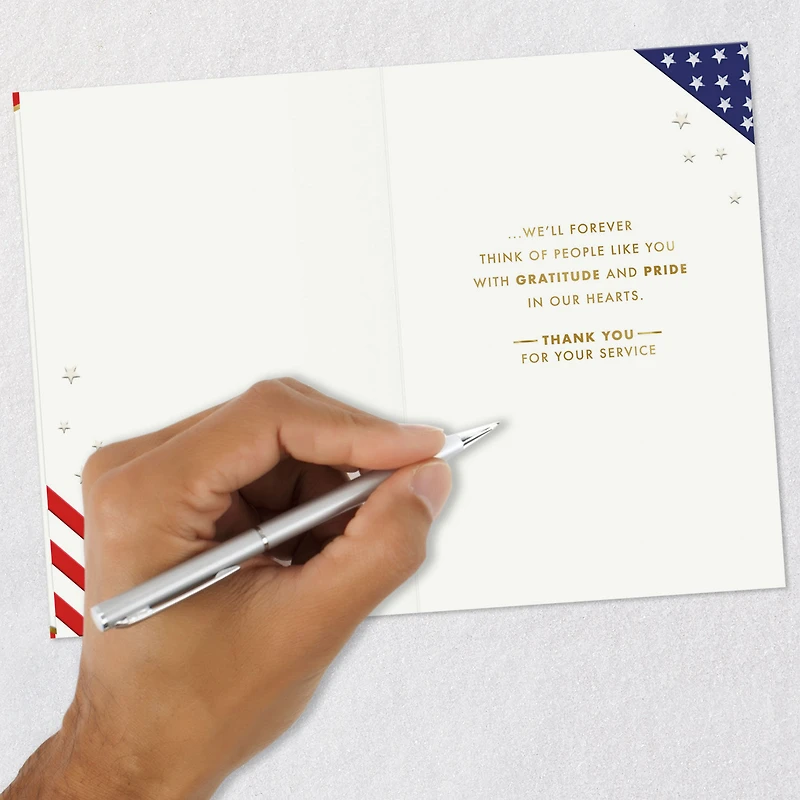 ...WE'LL FOREVER
THINK OF PEOPLE LIKE YOU
WITH GRATITUDE AND PRIDE
IN OUR HEARTS.
THANK YOU
FOR YOUR SERVICE